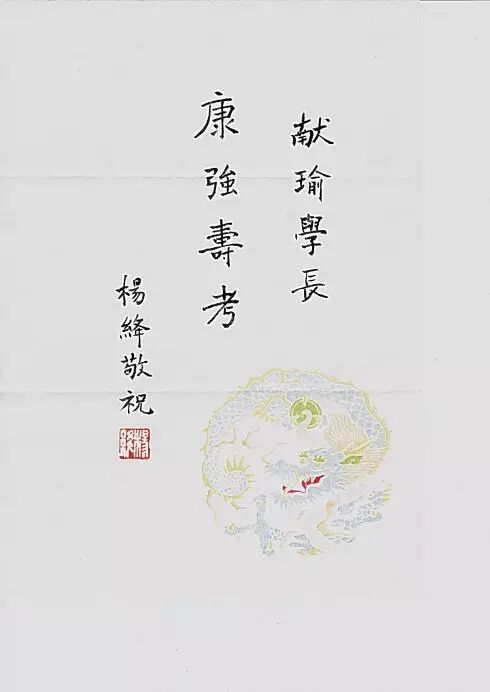 献瑜學長
康強壽考
楊絳敬祝